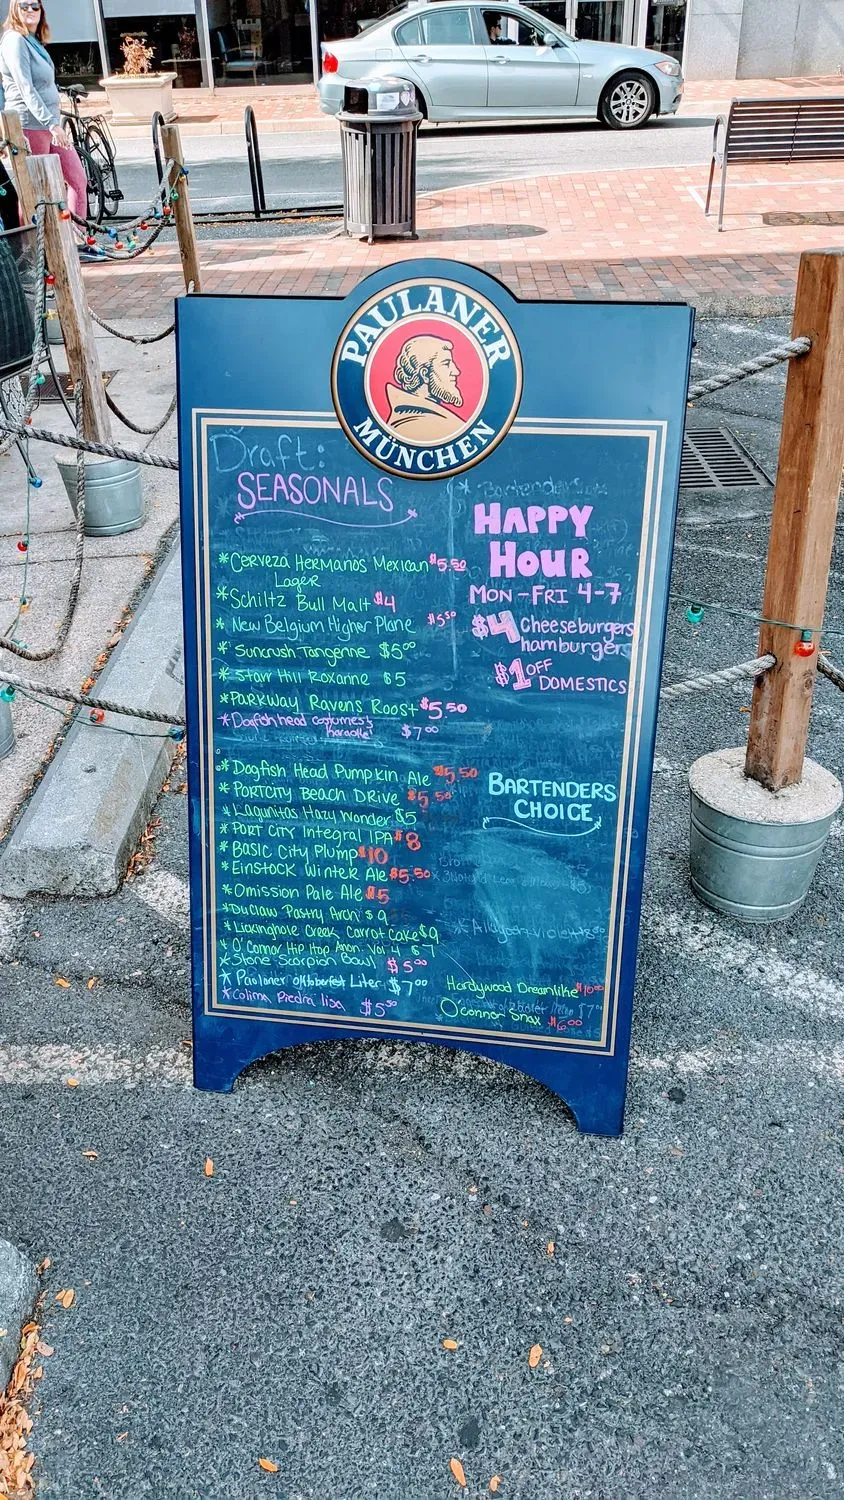 PAULANER
MÜNCHEN
Draft:
SEASONALS
*Cerveza Hermanos Mexican $5.50
Lager
*Schiltz Bull Malt $4
*New Belgium Higher Plane $5⁵⁰
*Suncrush Tangerine $5⁰⁰
*Starr Hill Roxanne $5
*Parkway Ravens Roost $5.50
*Dogfish head costumes &
karaoke! $7⁰⁰
*Dogfish Head Pumpkin Ale $5.50
*PortCity Beach Drive $5.50
*Lagunitas Hazy Wonder $5
*Port City Integral IPA $8
*Basic City Plump $10
*Einstock Winter Ale $5.50
*Omission Pale Ale $5
*DuClaw Pastry Archy $9
*Lickinghole Creek Carrot Cake $9
*O'Connor Hip Hop Anon. Vol 4 $7
*Stone Scorpion Bowl $5⁰⁰
*Paulaner oktoberfest Liter $7⁰⁰
*Colima Piedra lisa $5⁵⁰
HAPPY
HOUR
MON-FRI 4-7
$4 Cheeseburgers
hamburgers
$1 OFF
DOMESTICS
BARTENDERS
CHOICE
Hardywood Dreamlike $10⁰⁰
O'connor Snax $6⁰⁰